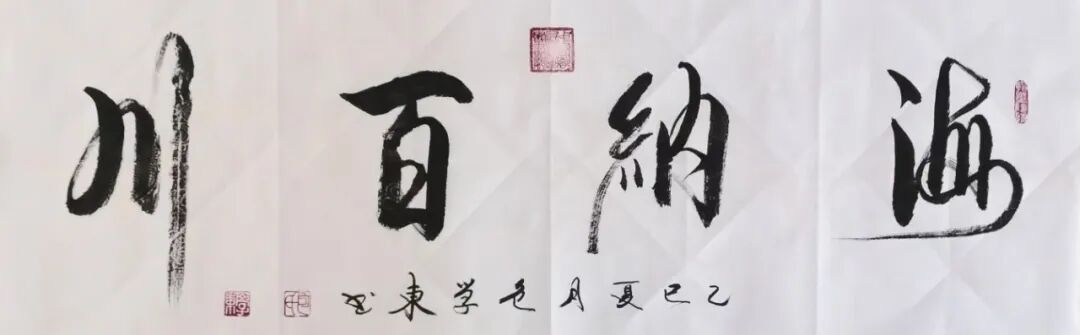 海納百川
乙巳夏月包学東书